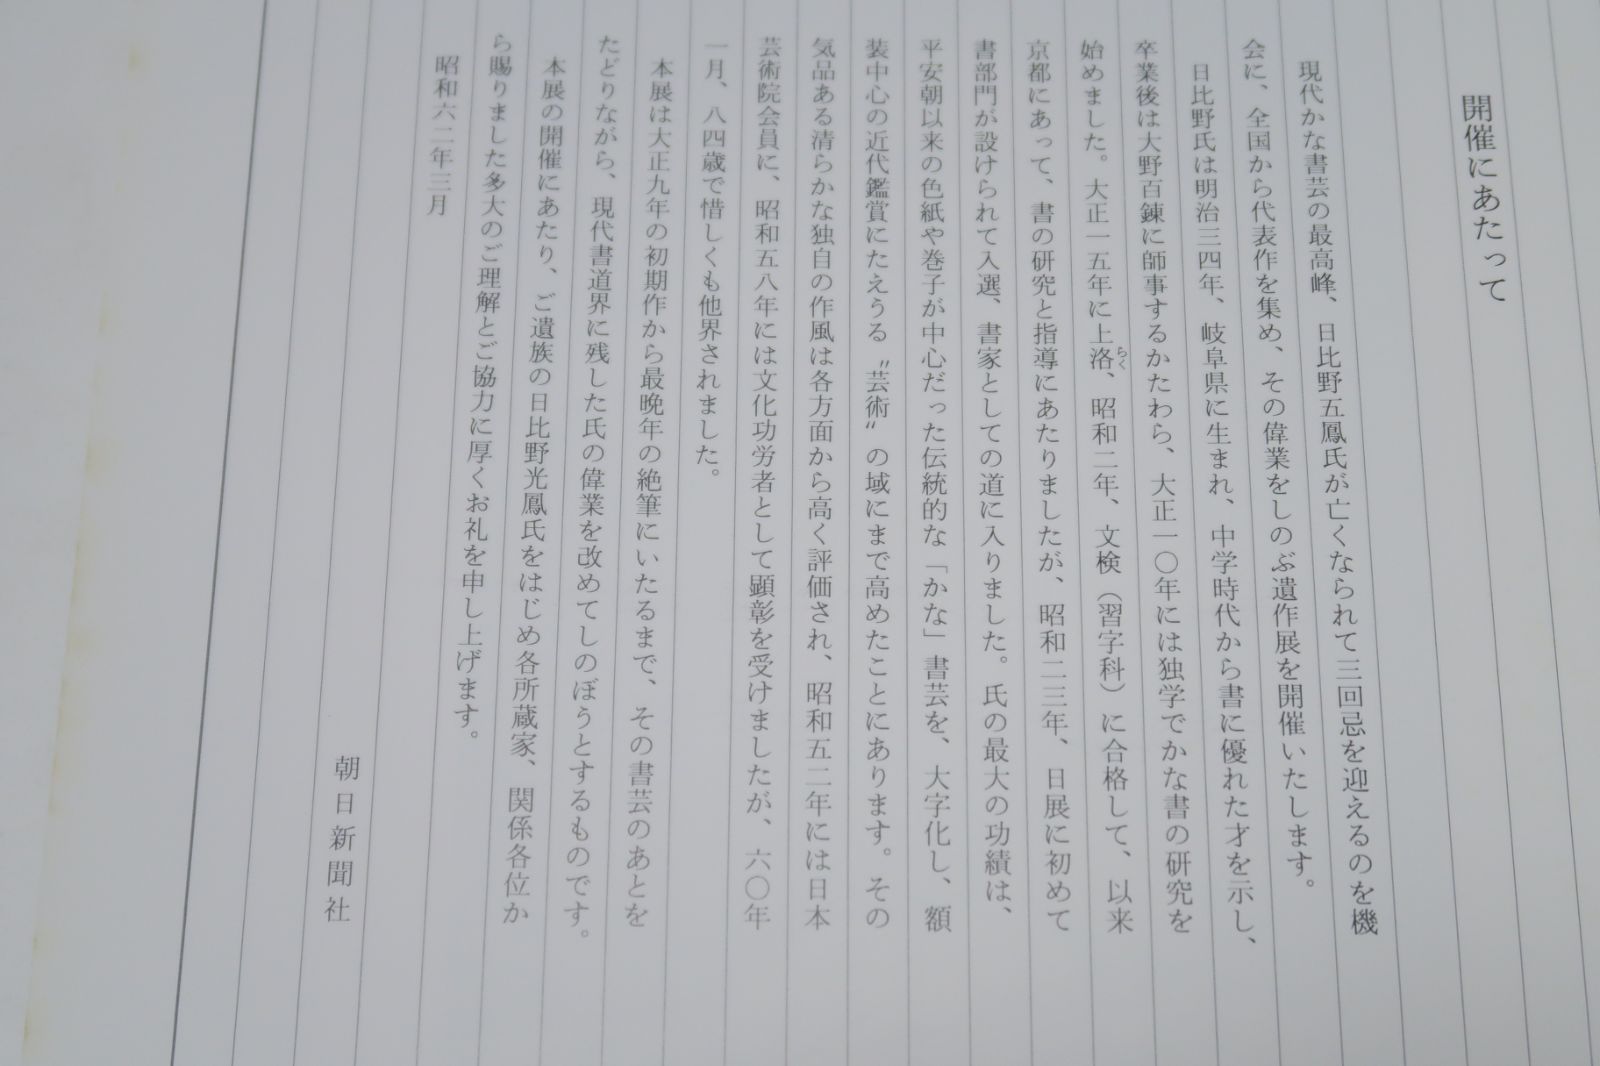 開催にあたって
現代かな書芸の最高峰、日比野五鳳氏が亡くなられて三回忌を迎えるのを機
会に、全国から代表作を集め、その偉業をしのぶ遺作展を開催いたします。
日比野氏は明治三四年、岐阜県に生まれ、中学時代から書に優れた才を示し、
卒業後は大野百錬に師事するかたわら、大正一〇年には独学でかな書の研究を
始めました。大正一五年に上洛らく、昭和二年、文検（習字科）に合格して、以来
京都にあって、書の研究と指導にあたりましたが、昭和二三年、日展に初めて
書部門が設けられて入選、書家としての道に入りました。氏の最大の功績は、
平安朝以来の色紙や巻子が中心だった伝統的な「かな」書芸を、大字化し、額
装中心の近代鑑賞にたえうる〝芸術〟の域にまで高めたことにあります。その
気品ある清らかな独自の作風は各方面から高く評価され、昭和五二年には日本
芸術院会員に、昭和五八年には文化功労者として顕彰を受けましたが、六〇年
一月、八四歳で惜しくも他界されました。
本展は大正九年の初期作から最晩年の絶筆にいたるまで、その書芸のあとを
たどりながら、現代書道界に残した氏の偉業を改めてしのぼうとするものです。
本展の開催にあたり、ご遺族の日比野光鳳氏をはじめ各所蔵家、関係各位か
ら賜りました多大のご理解とご協力に厚くお礼を申し上げます。
昭和六二年三月
朝日新聞社